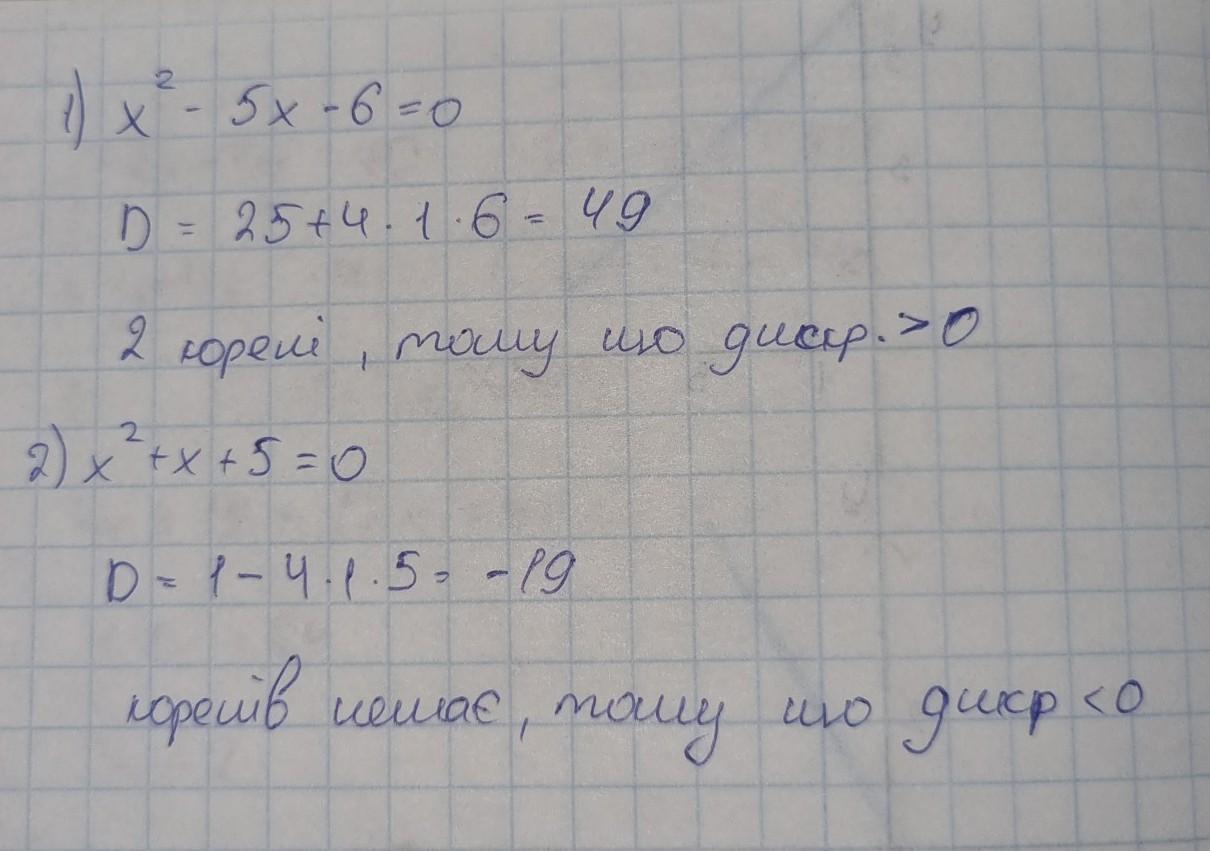 1) x² - 5x - 6 = 0
D = 25 + 4 · 1 · 6 = 49
2 корені, тому що дискр. > 0
2) x² + x + 5 = 0
D = 1 - 4 · 1 · 5 = -19
коренів немає, тому що дискр < 0